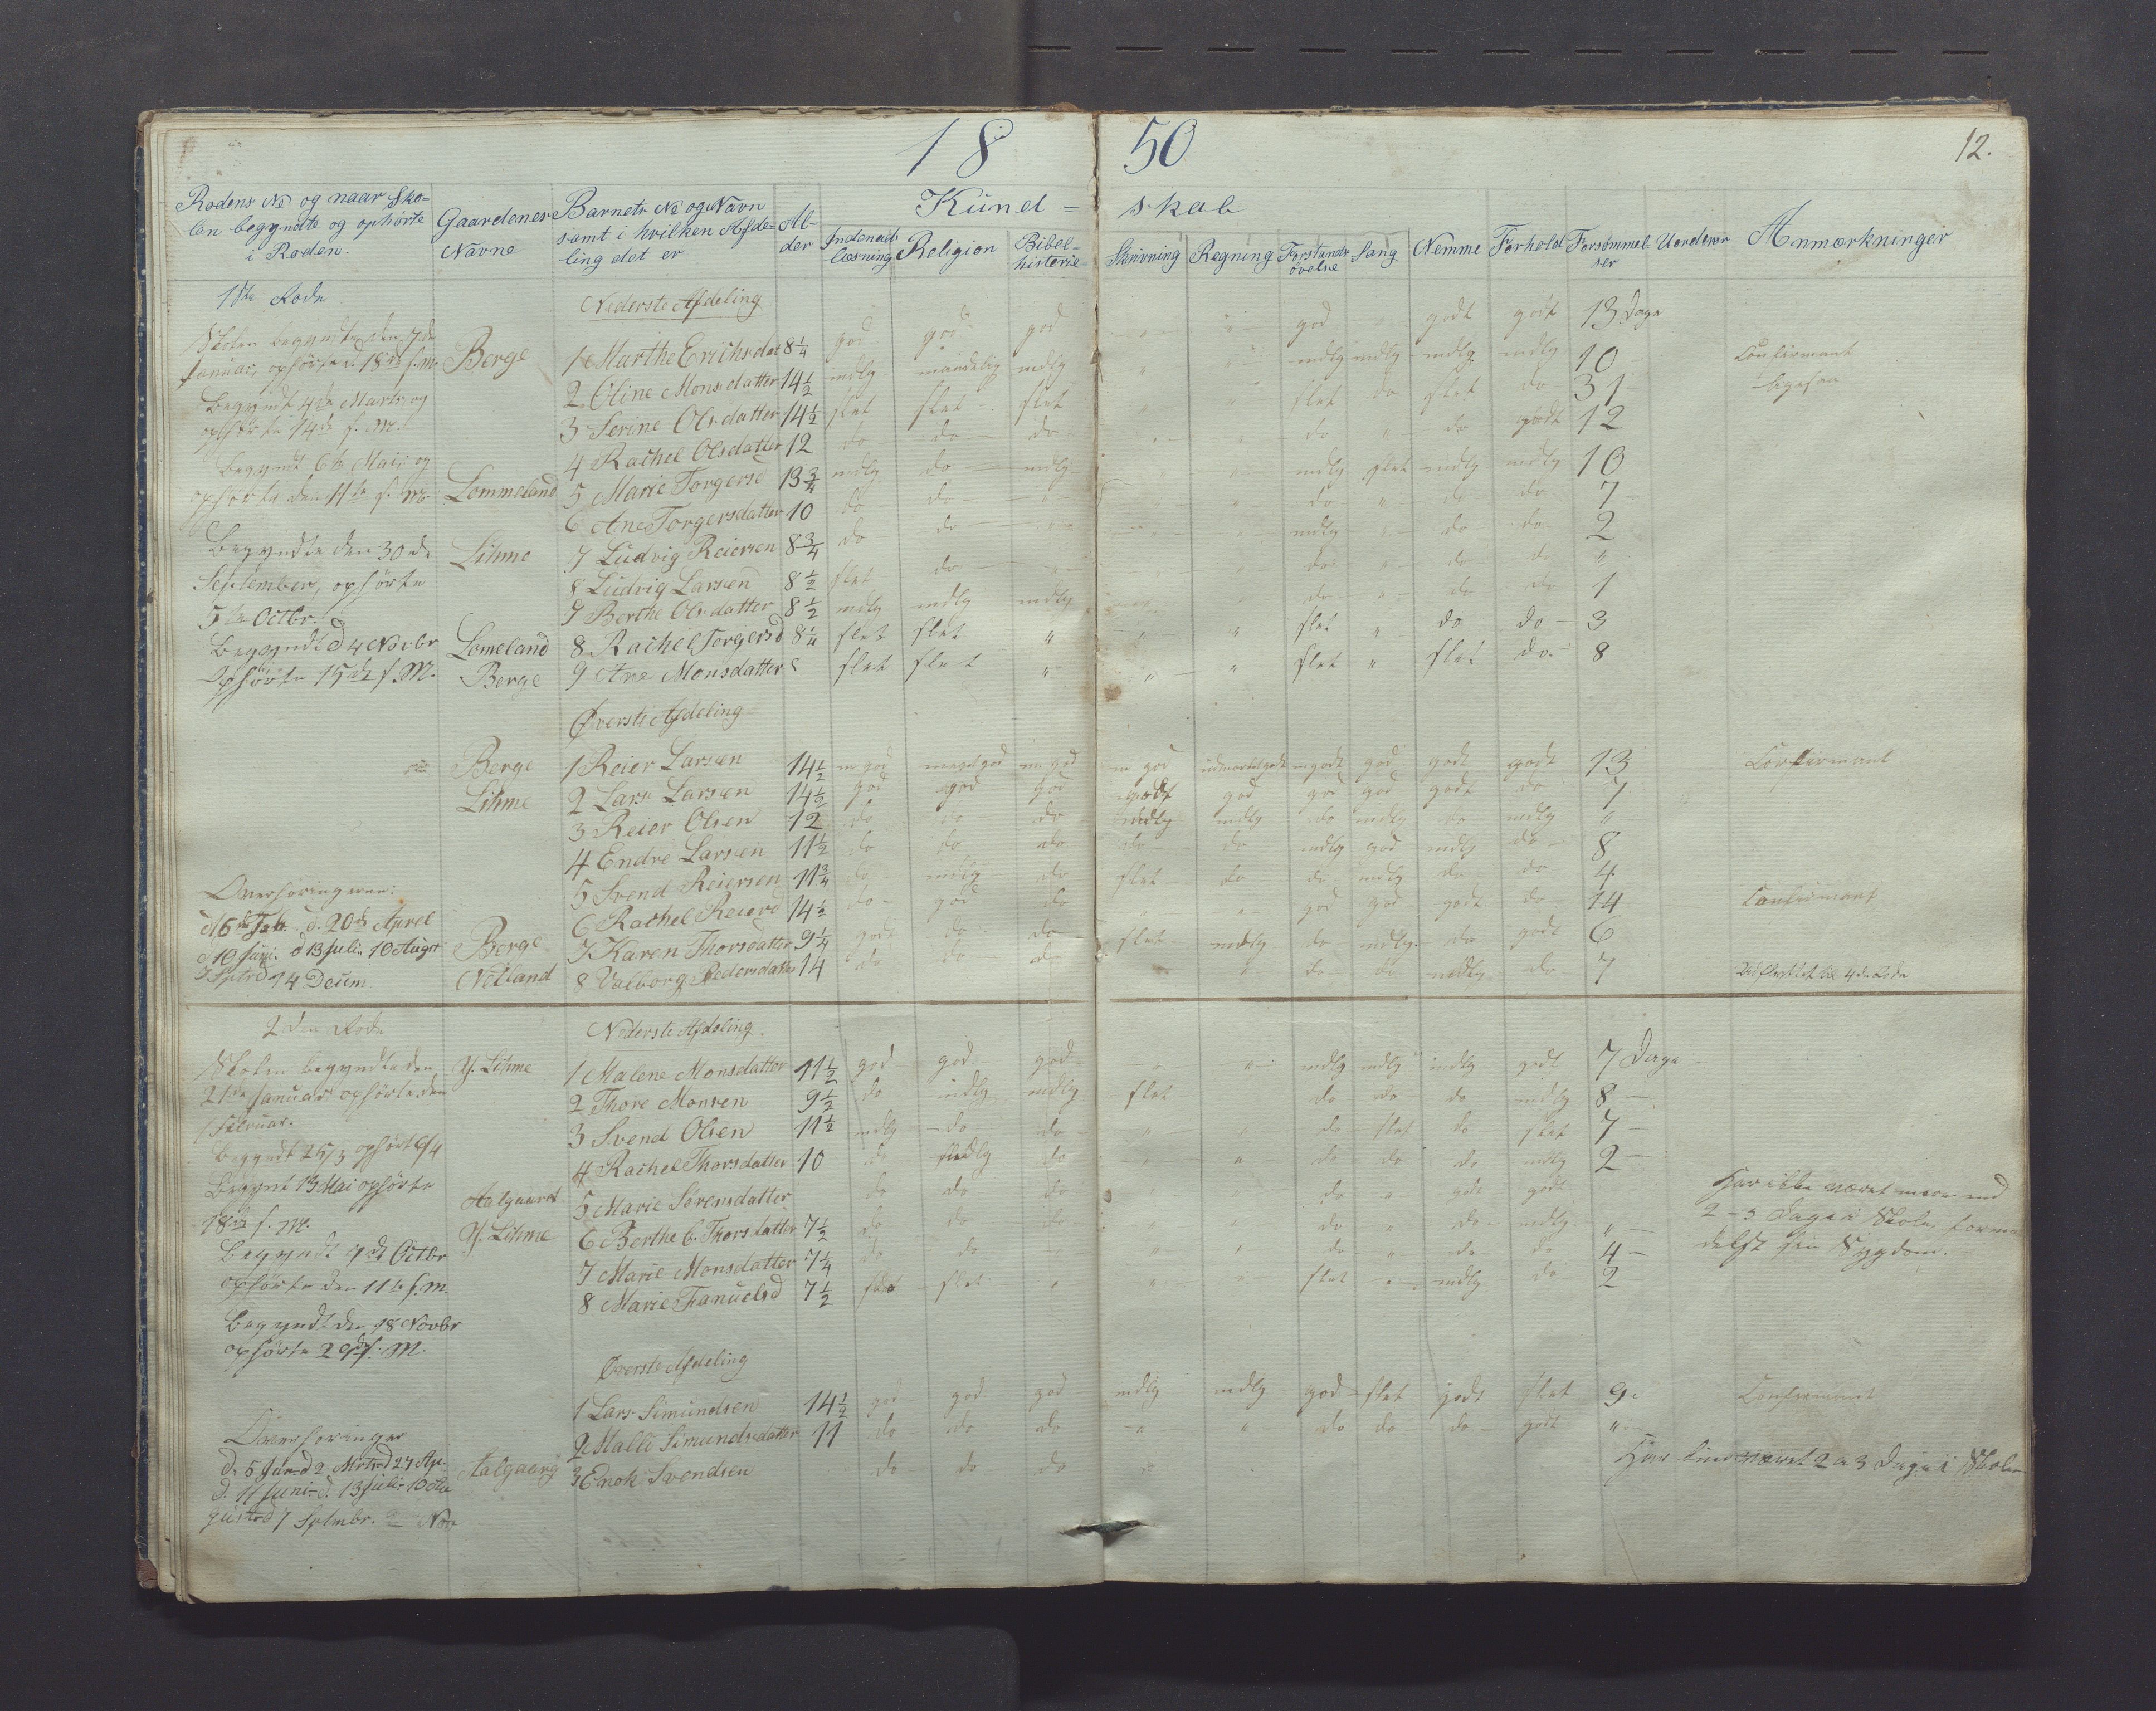 18 50
12.
Rodens No og naar Sko=
len begyndte og ophørte
i Roden.
Gaardenes
Navne
Barnets No og Navn
samt i hvilken Afde=
ling det er
Al=
der
Kund= skab
Indenads
læsning
Religion
Bibel=
historie
Skrivning
Regning
Forstands
øvelse
Sang
Nemme
Forhold
Forsømmel
ser
Uordener
Anmærkninger
1ste Rode
Nederste Afdeling
Skolen begyndte den 7de
Januar, ophørte d. 18de s.m.
Begyndt 4de Marts og
ophørte 14de s.M.
Begyndt 6te Mai og
ophørte den 11te s. m.
Begyndte den 30de
September, ophørte
5te Octbr.
Begyndt d 4 Novbr
Ophørte 15de s.M.
Berge 1 Marthe Erichsdat 8 1/4 god god god " " god godt godt 13 Dage
2 Oline Monsdatter 14 1/2 mdlg maadelig mdlg " " mdlg mdlg mdlg mdlg 10 Confirmant
3 Serine Olsdatter 14 1/2 slet slet slet " " slet do slet do 31 ligesaa
4 Rachel Olsdatter 12 do do do " " do " do godt 12
Lommeland 5 Marie Torgersd 13 3/4 mdlg do mdlg mdlg slet mdlg mdlg 10
6 Ane Torgersdatter 10 do do " " do " do do 7
Lihme 7 Ludvig Reiersen 8 3/4 do do " mdlg " do do 2
8 Ludvig Larsen 8 1/2 slet do " " do " do do "
9 Berthe Olsdatter 8 1/2 mdlg mdlg mdlg do " do do 1
Lomeland 8 Rachel Torgersd 8 1/4 slet slet " " " slet " do do 3
Berge 9 Ane Monsdatter 8 slet slet " " " slet " slet do 8
Øverste Afdeling
Berge 1 Reier Larsen 14 1/2 m god meget god m god m god udmærket godt m godt god godt godt 13 Confirmant
Lihme 2 Lars Larsen 14 1/2 god god god godt god god god godt do 7
3 Reier Olsen 12 do do do mdlg mdlg do mdlg do mdlg "
4 Endre Larsen 11 1/2 do do do do do mdlg god mdlg do 8
5 Svend Reiersen 11 3/4 do mdlg do slet do do mdlg do do 4
6 Rachel Reiersd 14 1/2 do god do " " god god godt do 14 Confirmant
Berge 7 Karen Thorsdatter 9 1/4 godt do do slet mdlg do mdlg do godt 6
Netland 8 Valborg Pedersdatter 14 do do do " do do mdlg do 7 Udflyttet til 4de Rode
Overhøringerne:
d. 20de Aprel
d 10 Juni. d 13 Juli. 10 August
14 Decem.
2den Rode
Nederste Afdeling.
Skolen begyndte den
21de Januar ophørte den
1 Februar.
Begyndt 25/3 ophørt 6/4
Begynt 13 Mai ophørte
18de s. M.
Begyndt 7de Octbr
ophørte den 11te s.m.
Begyndt den 18 Novbr
ophørte 29de s. M.
Y. Lihme 1 Malene Monsdatter 11 1/2 god god god " " mdlg mdlg mdlg godt 7 Dage
2 Thore Monsen 9 1/2 do mdlg mdlg slet do do do mdlg 8
3 Svend Olsen 11 1/2 mdlg do do " " do slet do slet 7
4 Rachel Thorsdatter 10 do mdlg do " " do do do mdlg 2
Aalgaard 5 Marie Sørensdatter do do do " do " godt godt Har ikke været mere end
2-3 Dage i Skole, forme
delst sin Sygdom.
Y. Lihme 6 Berthe C. Thorsdatter 7 1/2 do do do " " do " do mdlg "
7 Marie Monsdatter 7 1/4 do do " " do " do do 4
8 Marie Fanuelsd 7 1/2 slet slet " " " slet " mdlg do 2
Øverste Afdeling
1 Lars Simundsen 14 1/2 god god god mdlg mdlg god slet godt slet 9. Confirmant
2 Malli Simundsdatter 11 do do do " " do do do godt "
Aalgaard 3 Enok Svendsen do do do Har kun været 2 a 3 Dage i Skolen
Overhøringer
d. 11 Juni d. 13 Juli 10 Au
gust d 7 Sptmbr. Nov